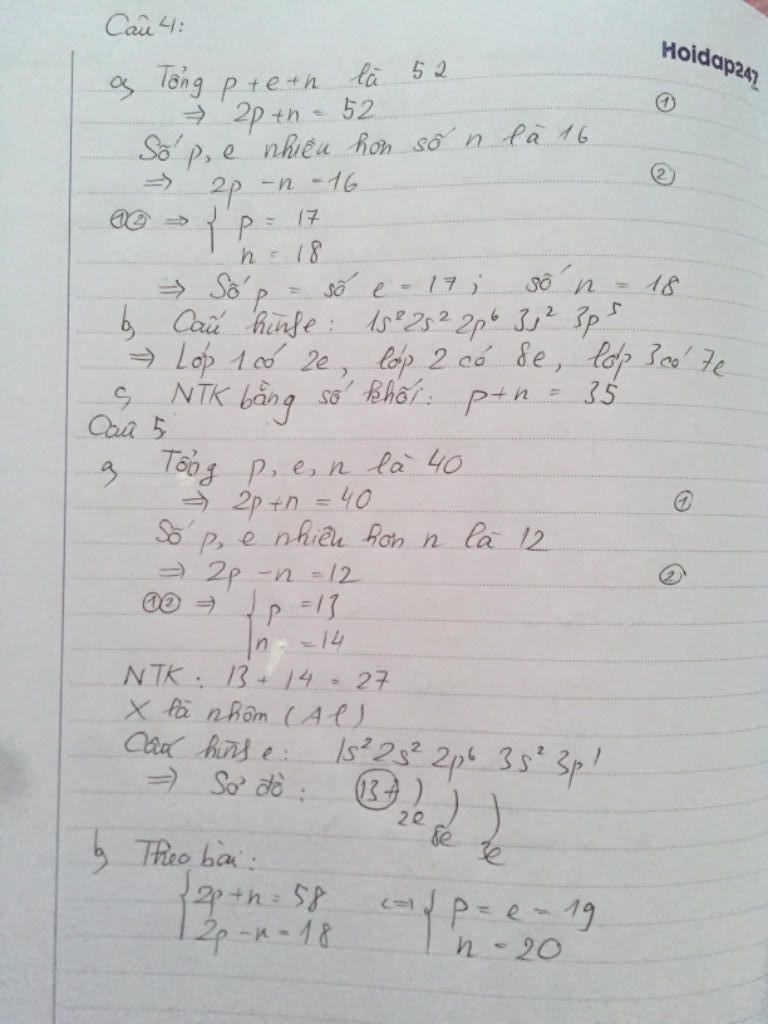 Câu 4:
Hoidap247
a, Tổng p + e + n là 52
⇒ 2p + n = 52 ①
Số p, e nhiều hơn số n là 16
⇒ 2p - n = 16 ②
①② ⇒ { p = 17
n = 18
⇒ Số p = số e = 17 ; số n = 18
b, Cấu hình e : 1s² 2s² 2p⁶ 3s² 3p⁵
⇒ Lớp 1 có 2e, lớp 2 có 8e, lớp 3 có 7e
c, NTK bằng số khối : p + n = 35
Câu 5.
a, Tổng p, e, n là 40
⇒ 2p + n = 40 ①
Số p, e nhiều hơn n là 12
⇒ 2p - n = 12 ②
①② ⇒ { p = 13
n = 14
NTK : 13 + 14 = 27
X là nhôm (Al)
Cấu hình e : 1s² 2s² 2p⁶ 3s² 3p¹
⇒ Sơ đồ : (13+) ) ) )
2e 8e 3e
b, Theo bài :
{ 2p + n = 58 <=> { p = e = 19
2p - n = 18 n = 20